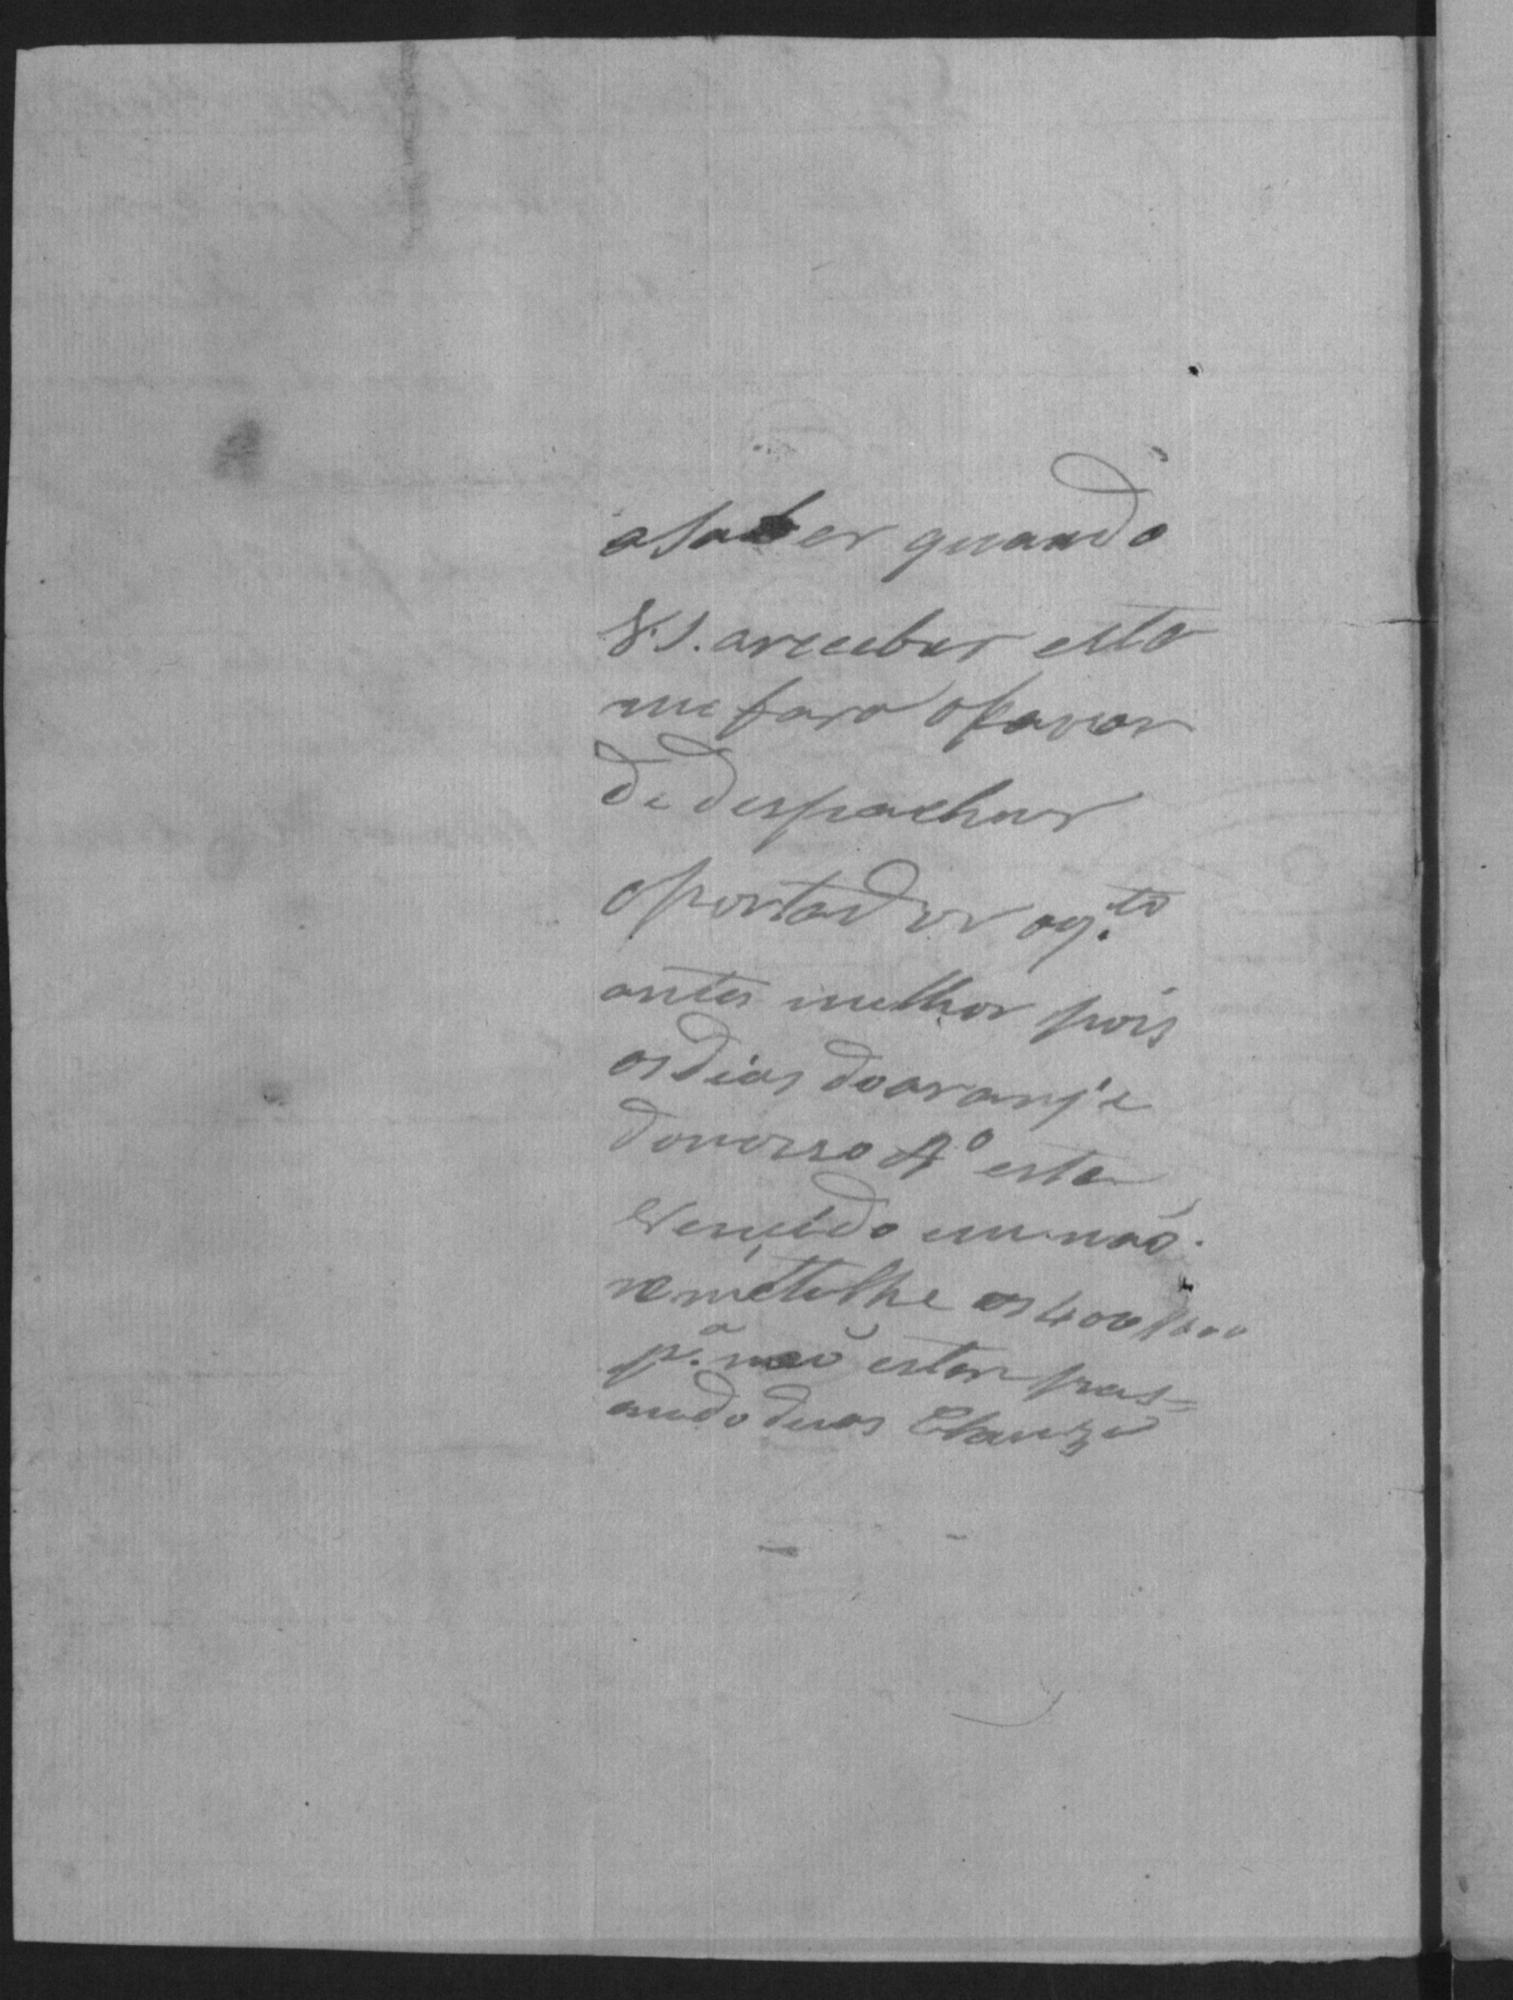 asaber quando
V.S. arecebar esta
me fara ofavor
de despachar
oportador oq.to
antes melhor pois
osdias doaranje
donosso A° esta
Vencido eu não
remetelhe os 400$000
p.a não estar pas=
ando duas